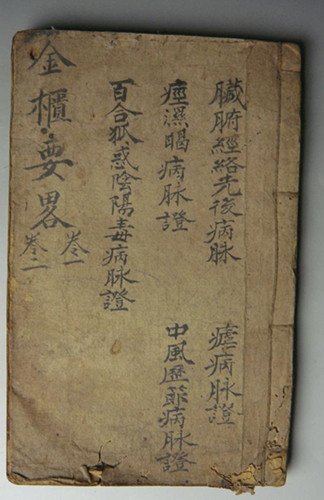 臟腑經絡先後病脉
痙濕暍病脉證
百合狐惑陰陽毒病脉證
瘧病脉證
中風歷節病脉證
金櫃要畧
卷一
卷二